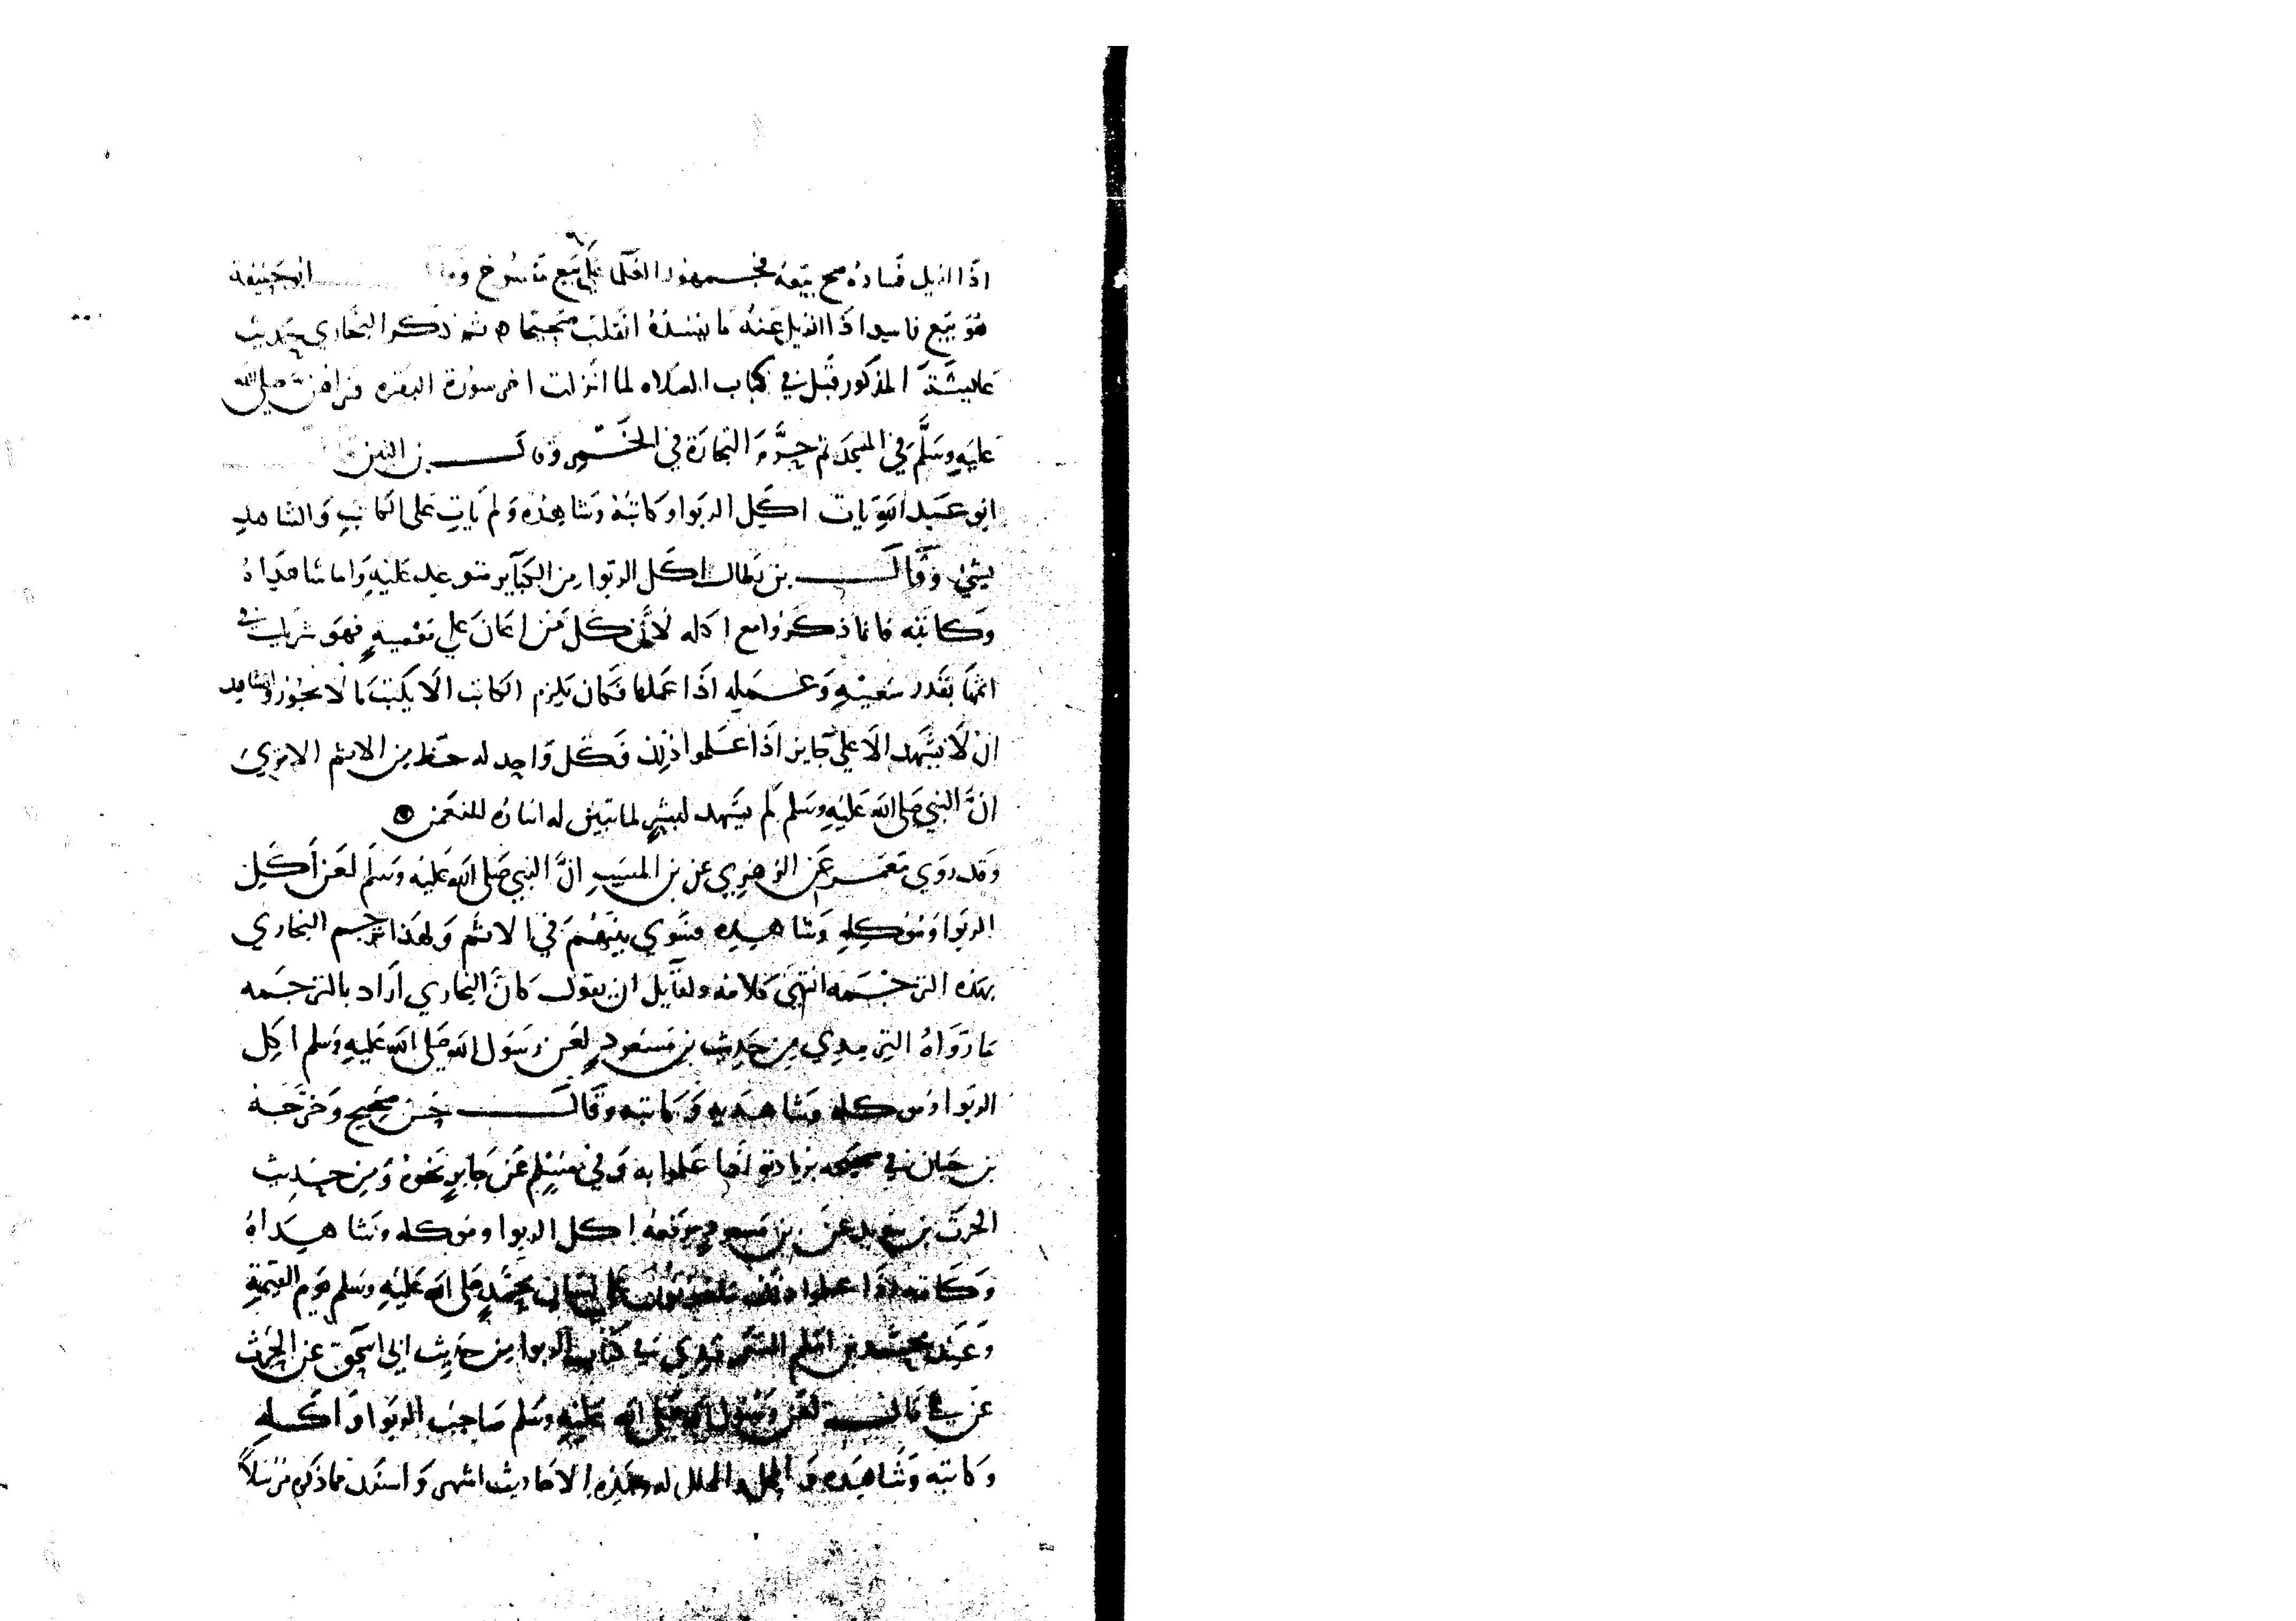 اذا ازيل فساده صح بيعه فجمهور العلما علي بيع مفسوخ وقال ابو حنيفة
هو بيع فاسد اذا ازيل عنه ما يفسده انقلب صحيحا ه ثم ذكر البخاري حديث
عايشة المذكور قبل في كتاب الصلاه لما انزلت اخر سورة البقره قراهن صلى الله
عليه وسلم في المسجد ثم حرم التجارة في الخمر وقال بن التين
ابو عبد الله باب اكل الربوا وكاتبه وشاهده ولم يات على الكاتب والشاهد
بشئ وقال بن بطال اكل الربوا من الكبآير متوعد عليه واما شاهداه
وكاتبه فانما ذكروا مع اكله لأن كل من اعان علي معصيه فهو شريك في
اثمها بقدر سعيه وعمله اذا عملها فكان يلزم الكاتب الا يكتب ما لا يجوز والشاهد
ان لا يشهد الا علي جايز اذا علموا ذلك فكل واحد له حظ من الاثم الا تري
ان النبي صلى الله عليه وسلم لم يشهد لبشير لما تبين له اثاره للنعمن
وقد روي معمر عن الزهري عن بن المسيب ان النبي صلى الله عليه وسلم لعن اكل
الربوا وموكله وشاهده فسوي بينهم في الاثم ولهذا ترجم البخاري
بهذه الترجمه انتهى كلامه ولقآيل ان يقول كان البخاري اراد بالترجمه
ما رواه الترمدي من حديث بن مسعود لعن رسول الله صلى الله عليه وسلم اكل
الربوا وموكله وشاهديه وكاتبه وقال حسن صحيح وخرجه
بن حبان في صحيحه بزيادة اذا علموا به وفي مسلم عن جابر نحوه ومن حديث
الحرث بن عن بن مسعود يرفعه اكل الربوا وموكله وشاهداه
وكاتبه اذا علموا ذلك ملعونون على لسان محمد صلى الله عليه وسلم يوم القيمة
وعند محمد بن اسلم السمرقندي في كتاب الربوا من حديث ابي اسحق عن الحرث
عن علي قال لعن رسول الله صلى الله عليه وسلم صاحب الربوا واكله
وكاتبه وشاهده والمحل والمحلل له وهذه الاحاديث اشهر واسند مما ذكره مرسلا